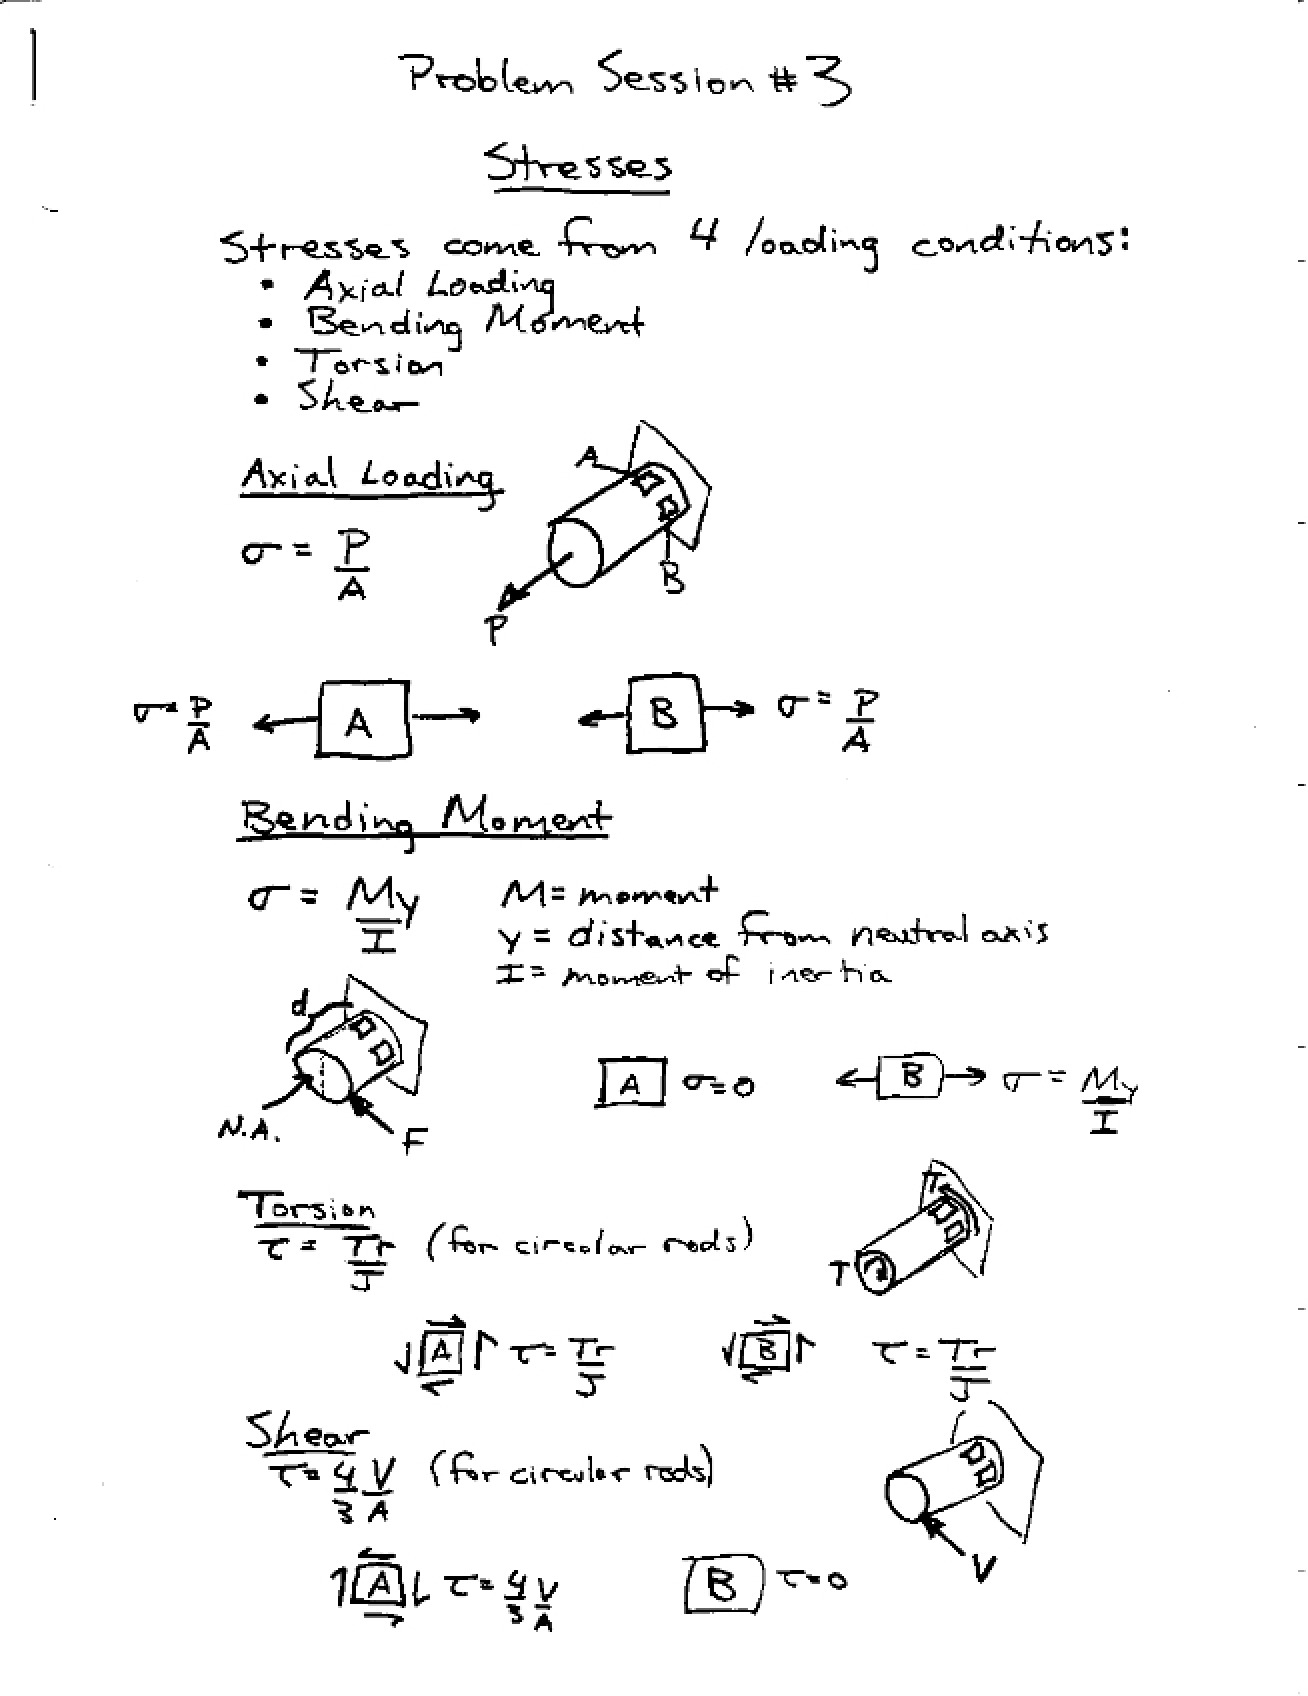 Problem Session #3
Stresses
Stresses come from 4 loading conditions:
• Axial Loading
• Bending Moment
• Torsion
• Shear
Axial Loading
σ = P/A
A
B
P
σ = P/A
A
B
σ = P/A
Bending Moment
σ = My/I
M = moment
y = distance from neutral axis
I = moment of inertia
d
N.A.
F
A σ=0
B σ = My/I
Torsion
τ = Tr/J (for circular rods)
T
T
A τ = Tr/J
B τ = Tr/J
Shear
τ = 4/3 V/A (for circular rods)
V
A τ = 4/3 V/A
B τ=0